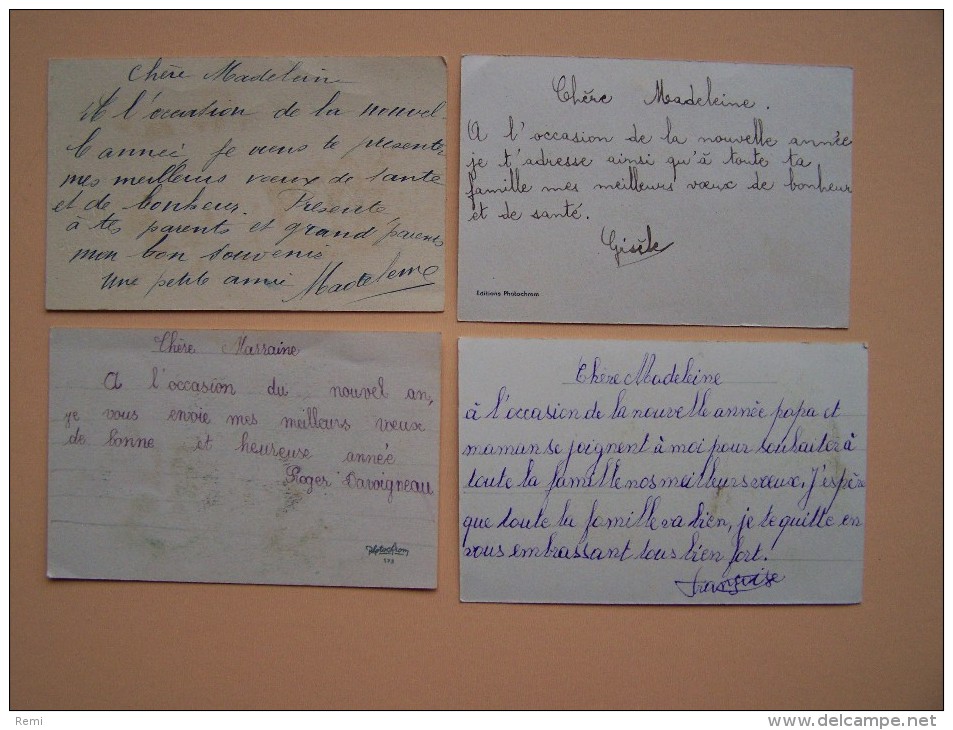 Chère Madeleine
A l'occasion de la nouvel-
le année je viens te présenter
mes meilleurs vœux de santé
et de bonheur. Présente
à tes parents et grand parents
mon bon souvenir
Une petite amie Madeleine
Chère Madeleine.
A l'occasion de la nouvelle année
je t'adresse ainsi qu'à toute ta
famille mes meilleurs vœux de bonheur
et de santé.
Gisèle
Editions Photochrom
Chère Marraine
A l'occasion du nouvel an,
je vous envoie mes meilleurs vœux
de bonne et heureuse année
Roger Davoigneau
Photochrom
Chère Madeleine
à l'occasion de la nouvelle année papa et
maman se joignent à moi pour souhaiter à
toute la famille nos meilleurs vœux. J'espère
que toute la famille va bien, je te quitte en
vous embrassant tous bien fort.
Françoise
Remi
www.delcampe.net